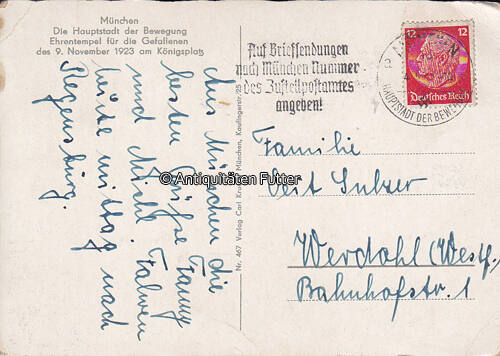 München
Die Hauptstadt der Bewegung
Ehrentempel für die Gefallenen
des 9. November 1923 am Königsplatz
Aus München die
besten Grüße
und
heute mittag nach
Regensburg.
© Antiquitäten Futter
Nr. 467 Verlag Carl München, Kaufingerstr. 25
Auf Briefsendungen
nach München Nummer
des Zustellpostamtes
angeben!
HAUPTSTADT DER BEWEGUNG
12 12
Deutsches Reich
Familie
Veit Sulzer
Werdohl (Westf.
Bahnhofstr. 1